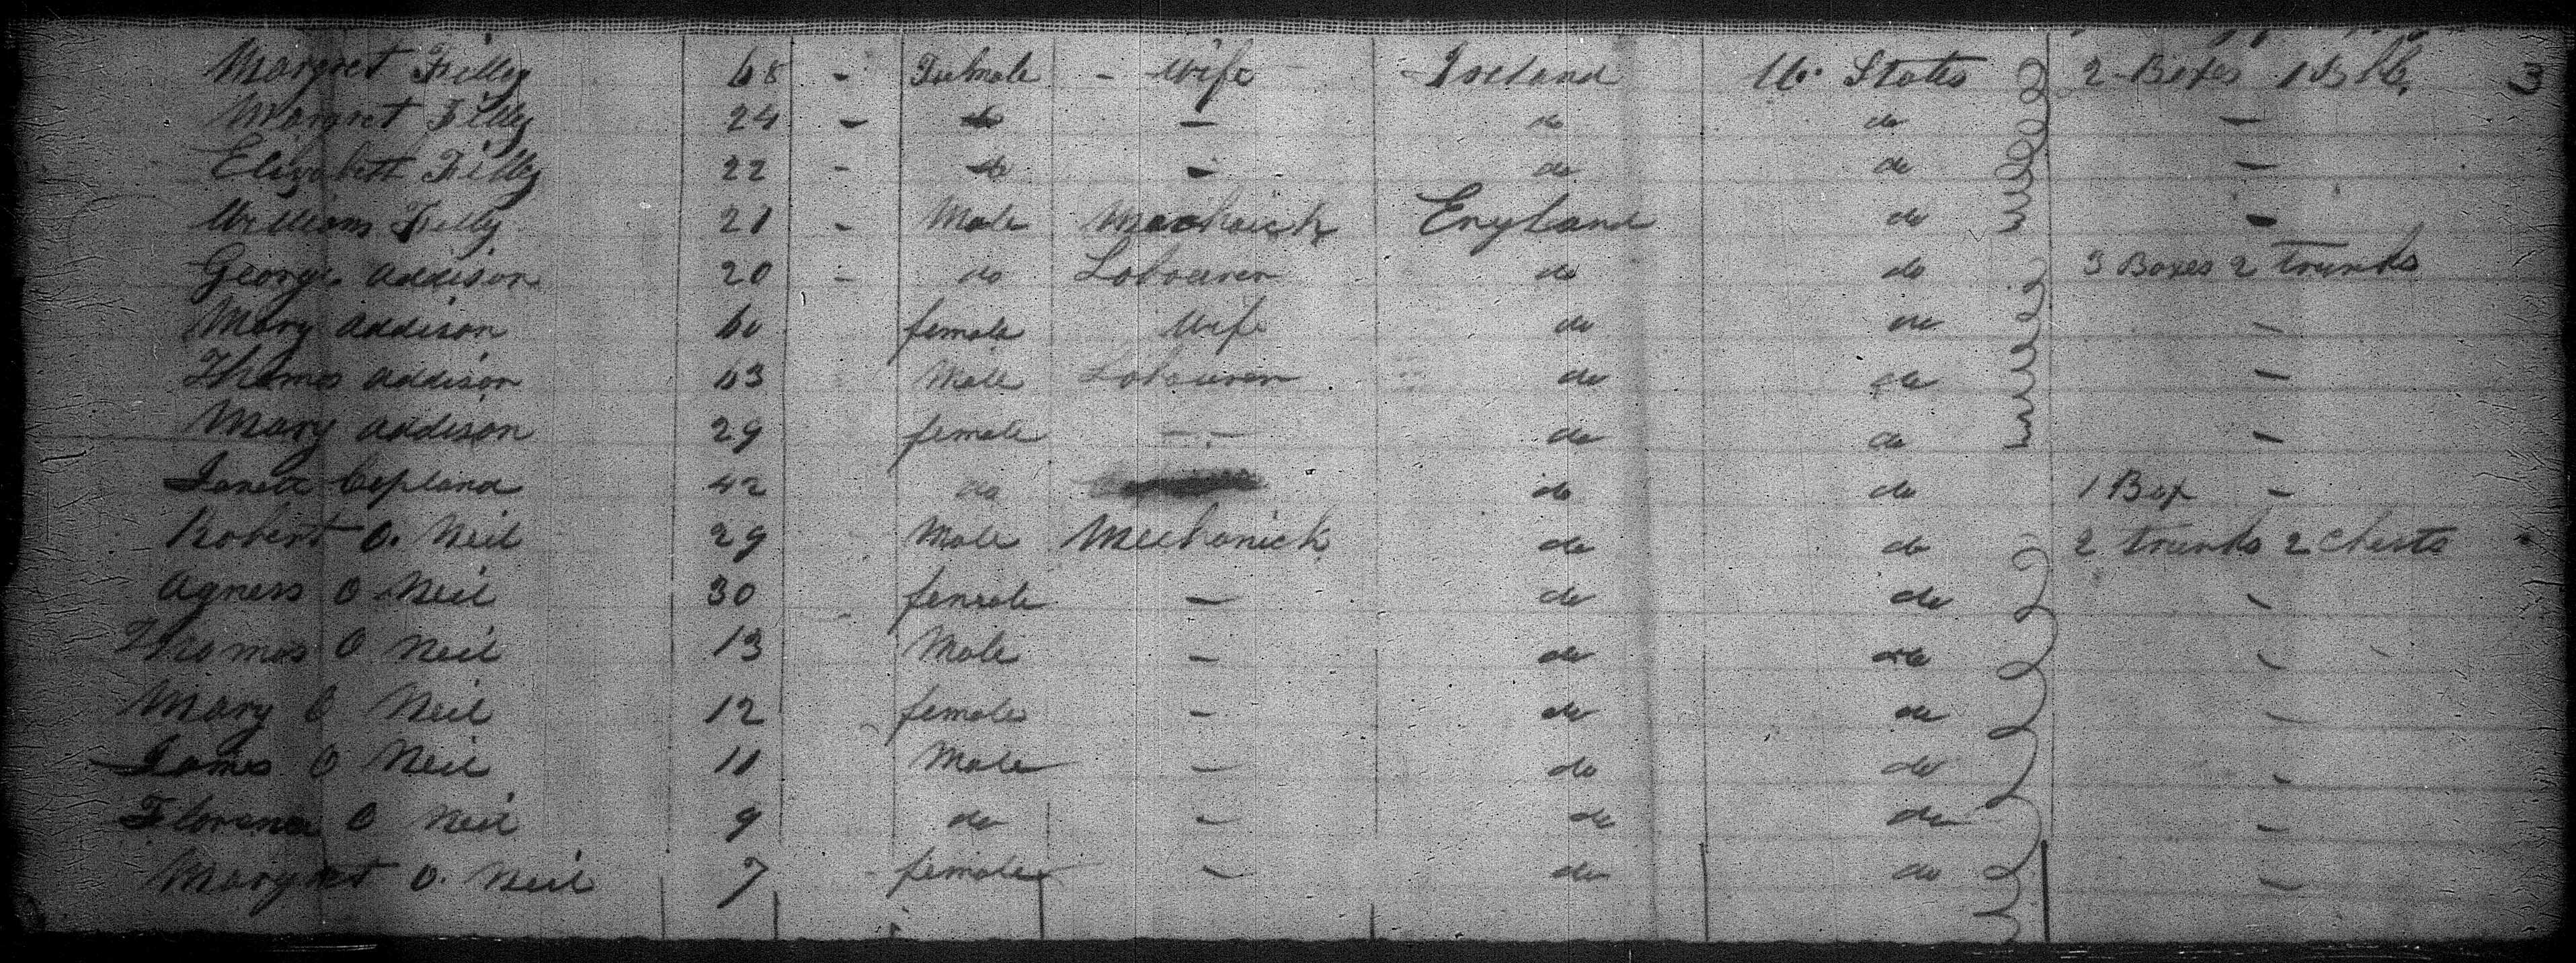 Margret Filley 68 - Feemale - Wife - Ireland U. States 2 Boxes 1 Bble 3
Margret Filley 24 - do - do do -
Elizabeth Filley 22 - do - do do -
William Filley 21 - Male Mechanick England do -
George Addison 20 - do Labourer do do 3 Boxes 2 Trunks
Mary Addison 60 female Wife do do -
Thomas Addison 63 Male Labourer do do -
Mary Addison 29 female - - do do -
Janett Copland 42 do do do 1 Box -
Robert O. Neil 29 Male Mechanick do do 2 Trunks 2 Chests
Agness O Neil 30 female - do do -
Thomas O Neil 13 Male - do do -
Mary O Neil 12 female - do do -
James O Neil 11 Male - do do -
Florence O Neil 9 do - do do -
Margret O. Neil 7 female - do do -